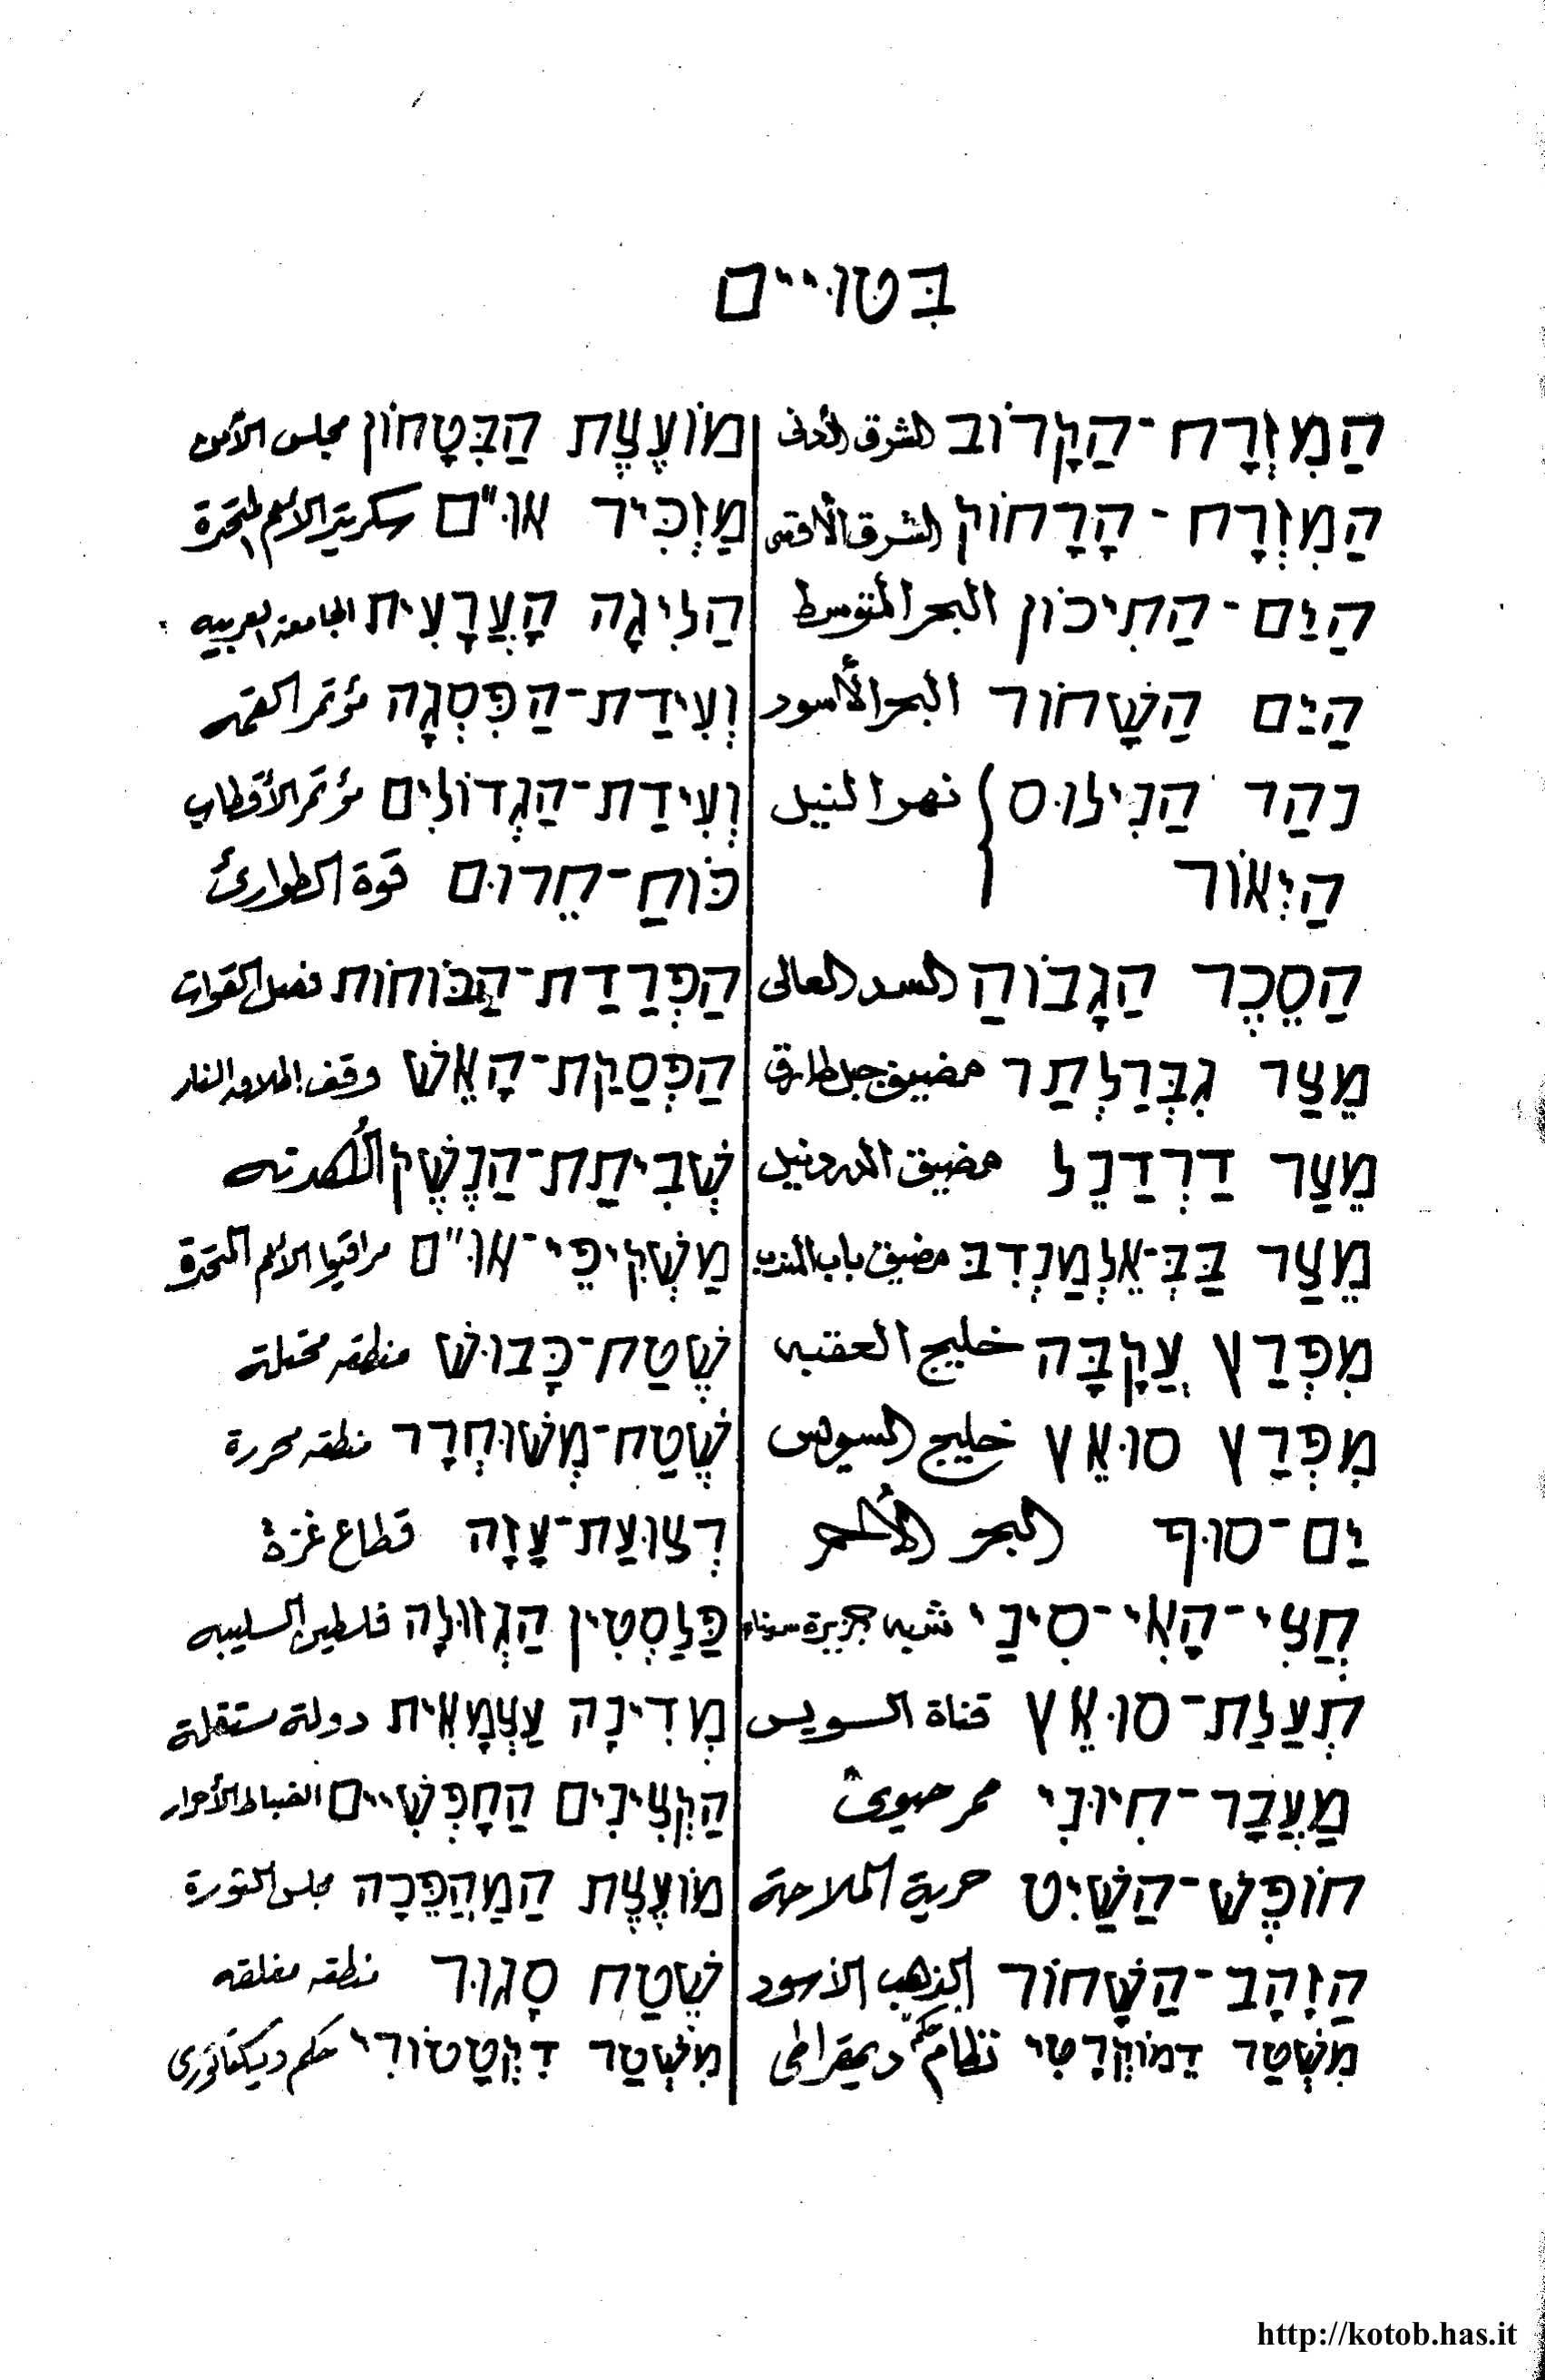 בִּטּוּיִים
הַמִּזְרָח־הַקָּרוֹב الشرق الأدنى
הַמִּזְרָח־הָרָחוֹק الشرق الأقصى
הַיַּם־הַתִּיכוֹן البحر المتوسط
הַיַּם הַשָּׁחוֹר البحر الأسود
נְהַר הַנִּילוּס } نهر النيل
הַיְאוֹר
הַסֶּכֶר הַגָּבוֹהַּ السد العالى
מֵצַר גִּבְּרַלְתַר مضيق جبل طارق
מֵצַר דַרְדַנֵל مضيق الدردنيل
מֵצַר בַּבְּ־אֵלְמַנְדִבּ مضيق باب المندب
מִפְרַץ עֲקָבָּה خليج العقبه
מִפְרַץ סוּאֵץ خليج السويس
יַם־סוּף البحر الأحمر
חֲצִי־הָאִי־סִינַי شبه جزيرة سيناء
תְעַלַת־סוּאֵץ قناة السويس
מַעֲבָר־חִיּוּנִי ممر حيوى
חוֹפֶשׁ־הַשַּׁיִט حرية الملاحة
הַזָּהָב־הַשָּׁחוֹר الذهب الأسود
מִשְׁטַר דֵמוֹקְרָטִי نظام حكم ديمقراطى
מוֹעֶצֶת הַבִּטָחוֹן مجلس الأمن
מַזְכִּיר אוּ״ם سكرتير الأمم المتحدة
הַלִיגָה הָעֲרָבִית الجامعة العربيه
וְעִידַת־הַפִּסְגָה مؤتمر القمه
וְעִידַת־הַגְדוֹלִים مؤتمر الأقطاب
כּוֹחַ־חֵרוּם قوة الطوارئ
הַפְרַדַת־הַכּוֹחוֹת فصل القوات
הַפְסַקַת־הָאֵשׁ وقف اطلاق النار
שְׁבִיתַת־הַנֶשֶׁק الهدنه
מַשְׁקִיפֵי־אוּ״ם مراقبوا الأمم المتحدة
שֶׁטַח־כָּבוּשׁ منطقه محتلة
שֶׁטַח־מְשׁוּחְרָר منطقه محررة
רְצוּעַת־עַזָה قطاع غزة
פַּלַסְטִין הַגְזוּלָה فلسطين السليبه
מְדִינָה עַצְמָאִית دولة مستقلة
הַקְצִינִים הַחָפְשִׁיים الضباط الأحرار
מוֹעֶצֶת הַמַהֲפֵכָה مجلس الثورة
שֶׁטַח סָגוּר منطقه مغلقه
מִשְׁטַר דִקְטָטוֹרִי حكم ديكتاتورى
http://kotob.has.it